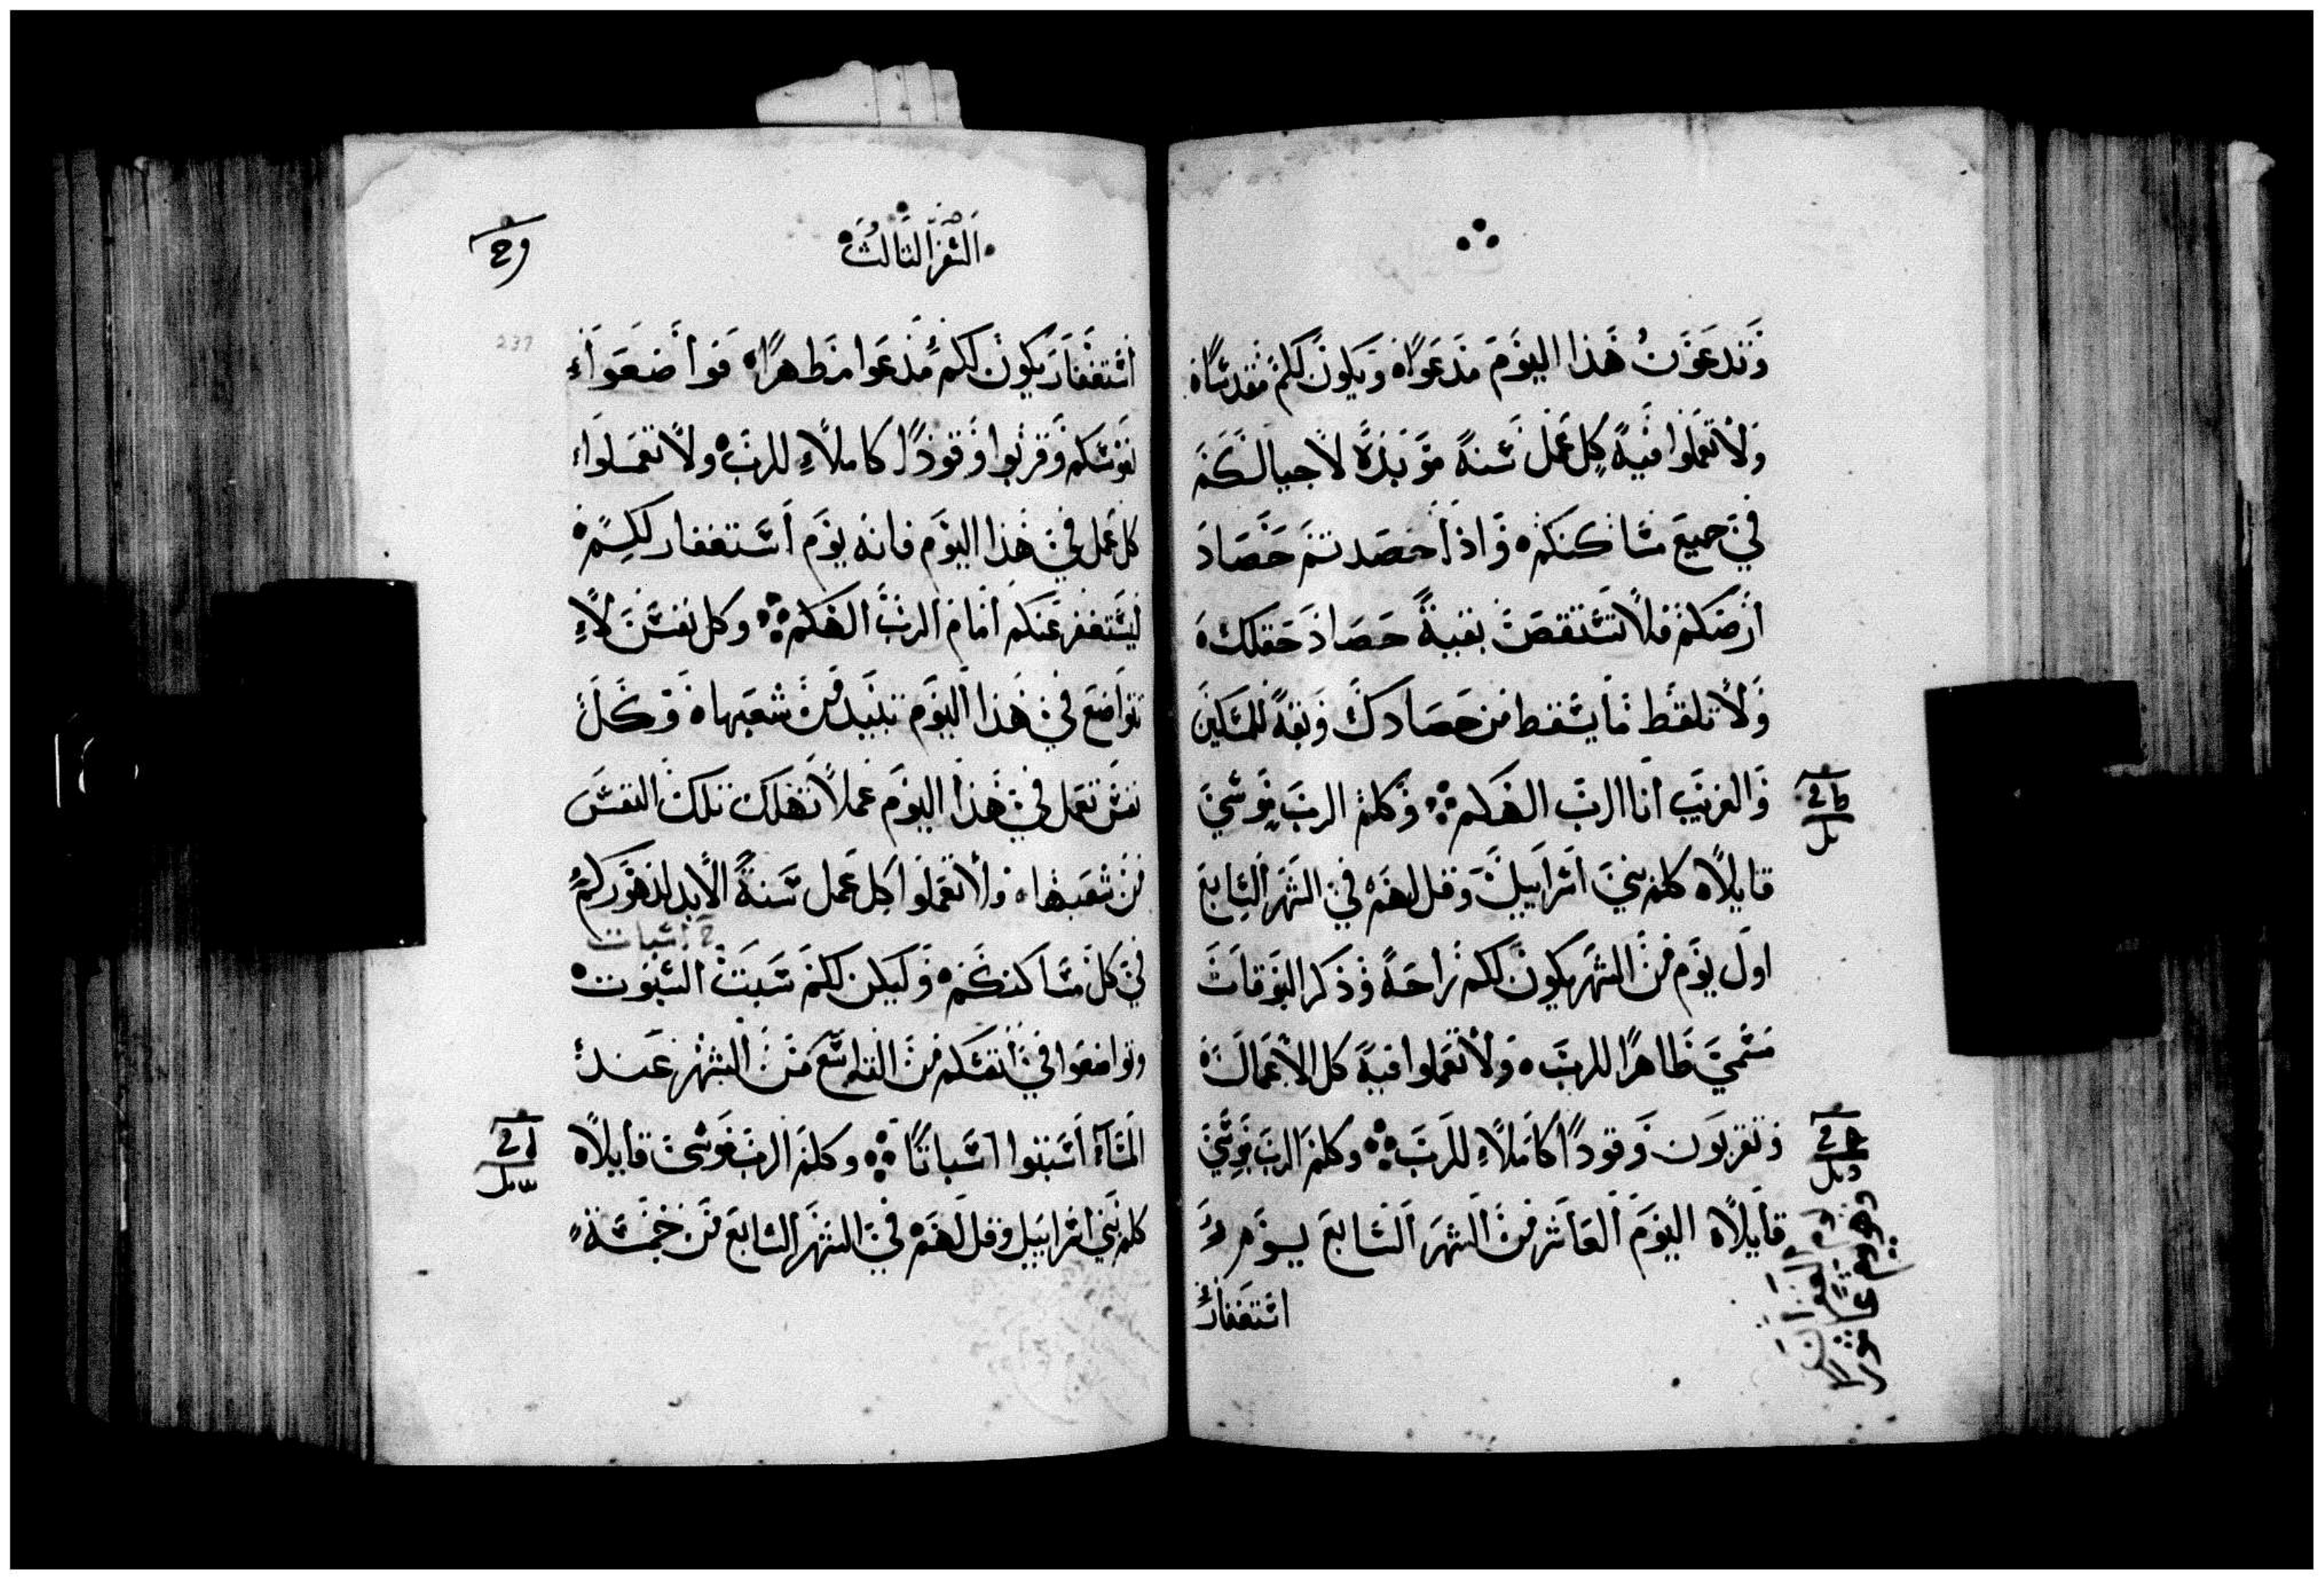 وتدعون هذا اليوم مدعوًا ويكون لكم مقدسًا
ولا تعملوا فيه كل عمل سنة مؤبدة لاجيالكم
في جميع مساكنكم واذا حصدتم حصاد
ارضكم فلا تستقص بقية حصاد حقلك
ولا تلقط ما يسقط من حصادك وبقه للمسكين
والغريب انا الرب الهكم وكلم الرب موسي
قايلاً كلم بني اسراييل وقل لهم في الشهر السابع
اول يوم من الشهر يكون لكم راحة وذكر البوقات
مسمي طاهرًا للرب ولا تعملوا فيه كل الاعمال
وتقربون وقودًا كاملاً للرب وكلم الرب موسي
قايلاً اليوم العاشر من الشهر السابع يوم
استغفار
السفر الثالث
237
استغفار يكون لكم مدعوا مطهرًا فواضعوا
نفوسكم وقربوا وقودًا كاملاً للرب ولا تعملوا
كل عمل في هذا اليوم فانه يوم استغفار لكم
ليستغفر عنكم امام الرب الهكم وكل نفس لا
تتواضع في هذا اليوم تبيد من شعبها وكل
نفس تعمل في هذا اليوم عملاً تهلك تلك النفس
من شعبها ولا تعملوا كل عمل سنة الابد لدهوركم
اسبات
في كل مساكنكم وليكن لكم سبت السبوت
وتواضعوا في انفسكم من التاسع من الشهر عند
المساء اسبتوا اسباتًا وكلم الرب موسى قايلاً
كلم بني اسراييل وقل لهم في الشهر السابع من خمسة